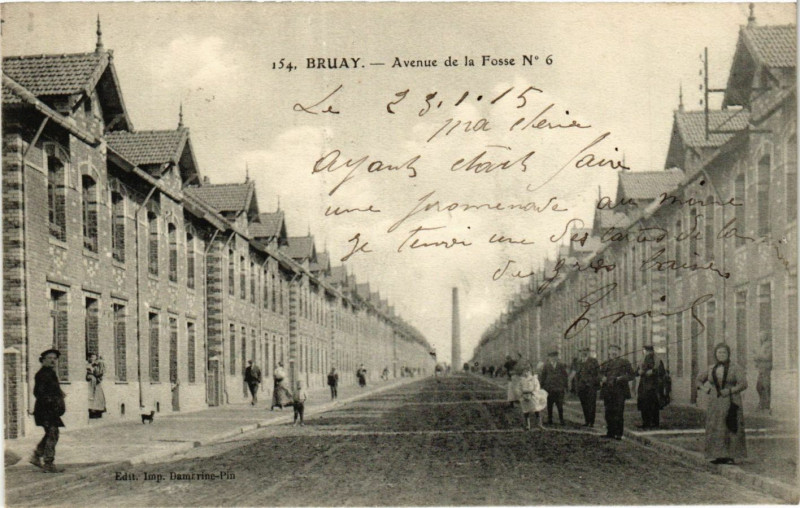 154. BRUAY. — Avenue de la Fosse N° 6
Le 23.1.15
Ma chérie
Ayant etait faire
une promenade au mine
je t'envoi une des cartes de la
des gros baisers
Edit. Imp. Damerine-Pin